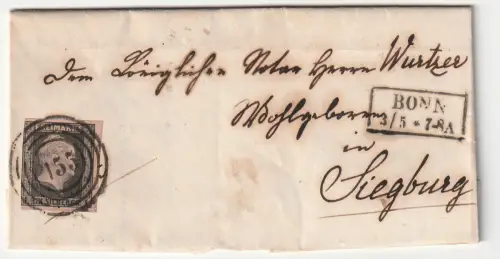 Dem Königlichen Notar Herrn Wurtzer
Wohlgeboren
in
Siegburg
BONN
3/5 * 7-8A
153